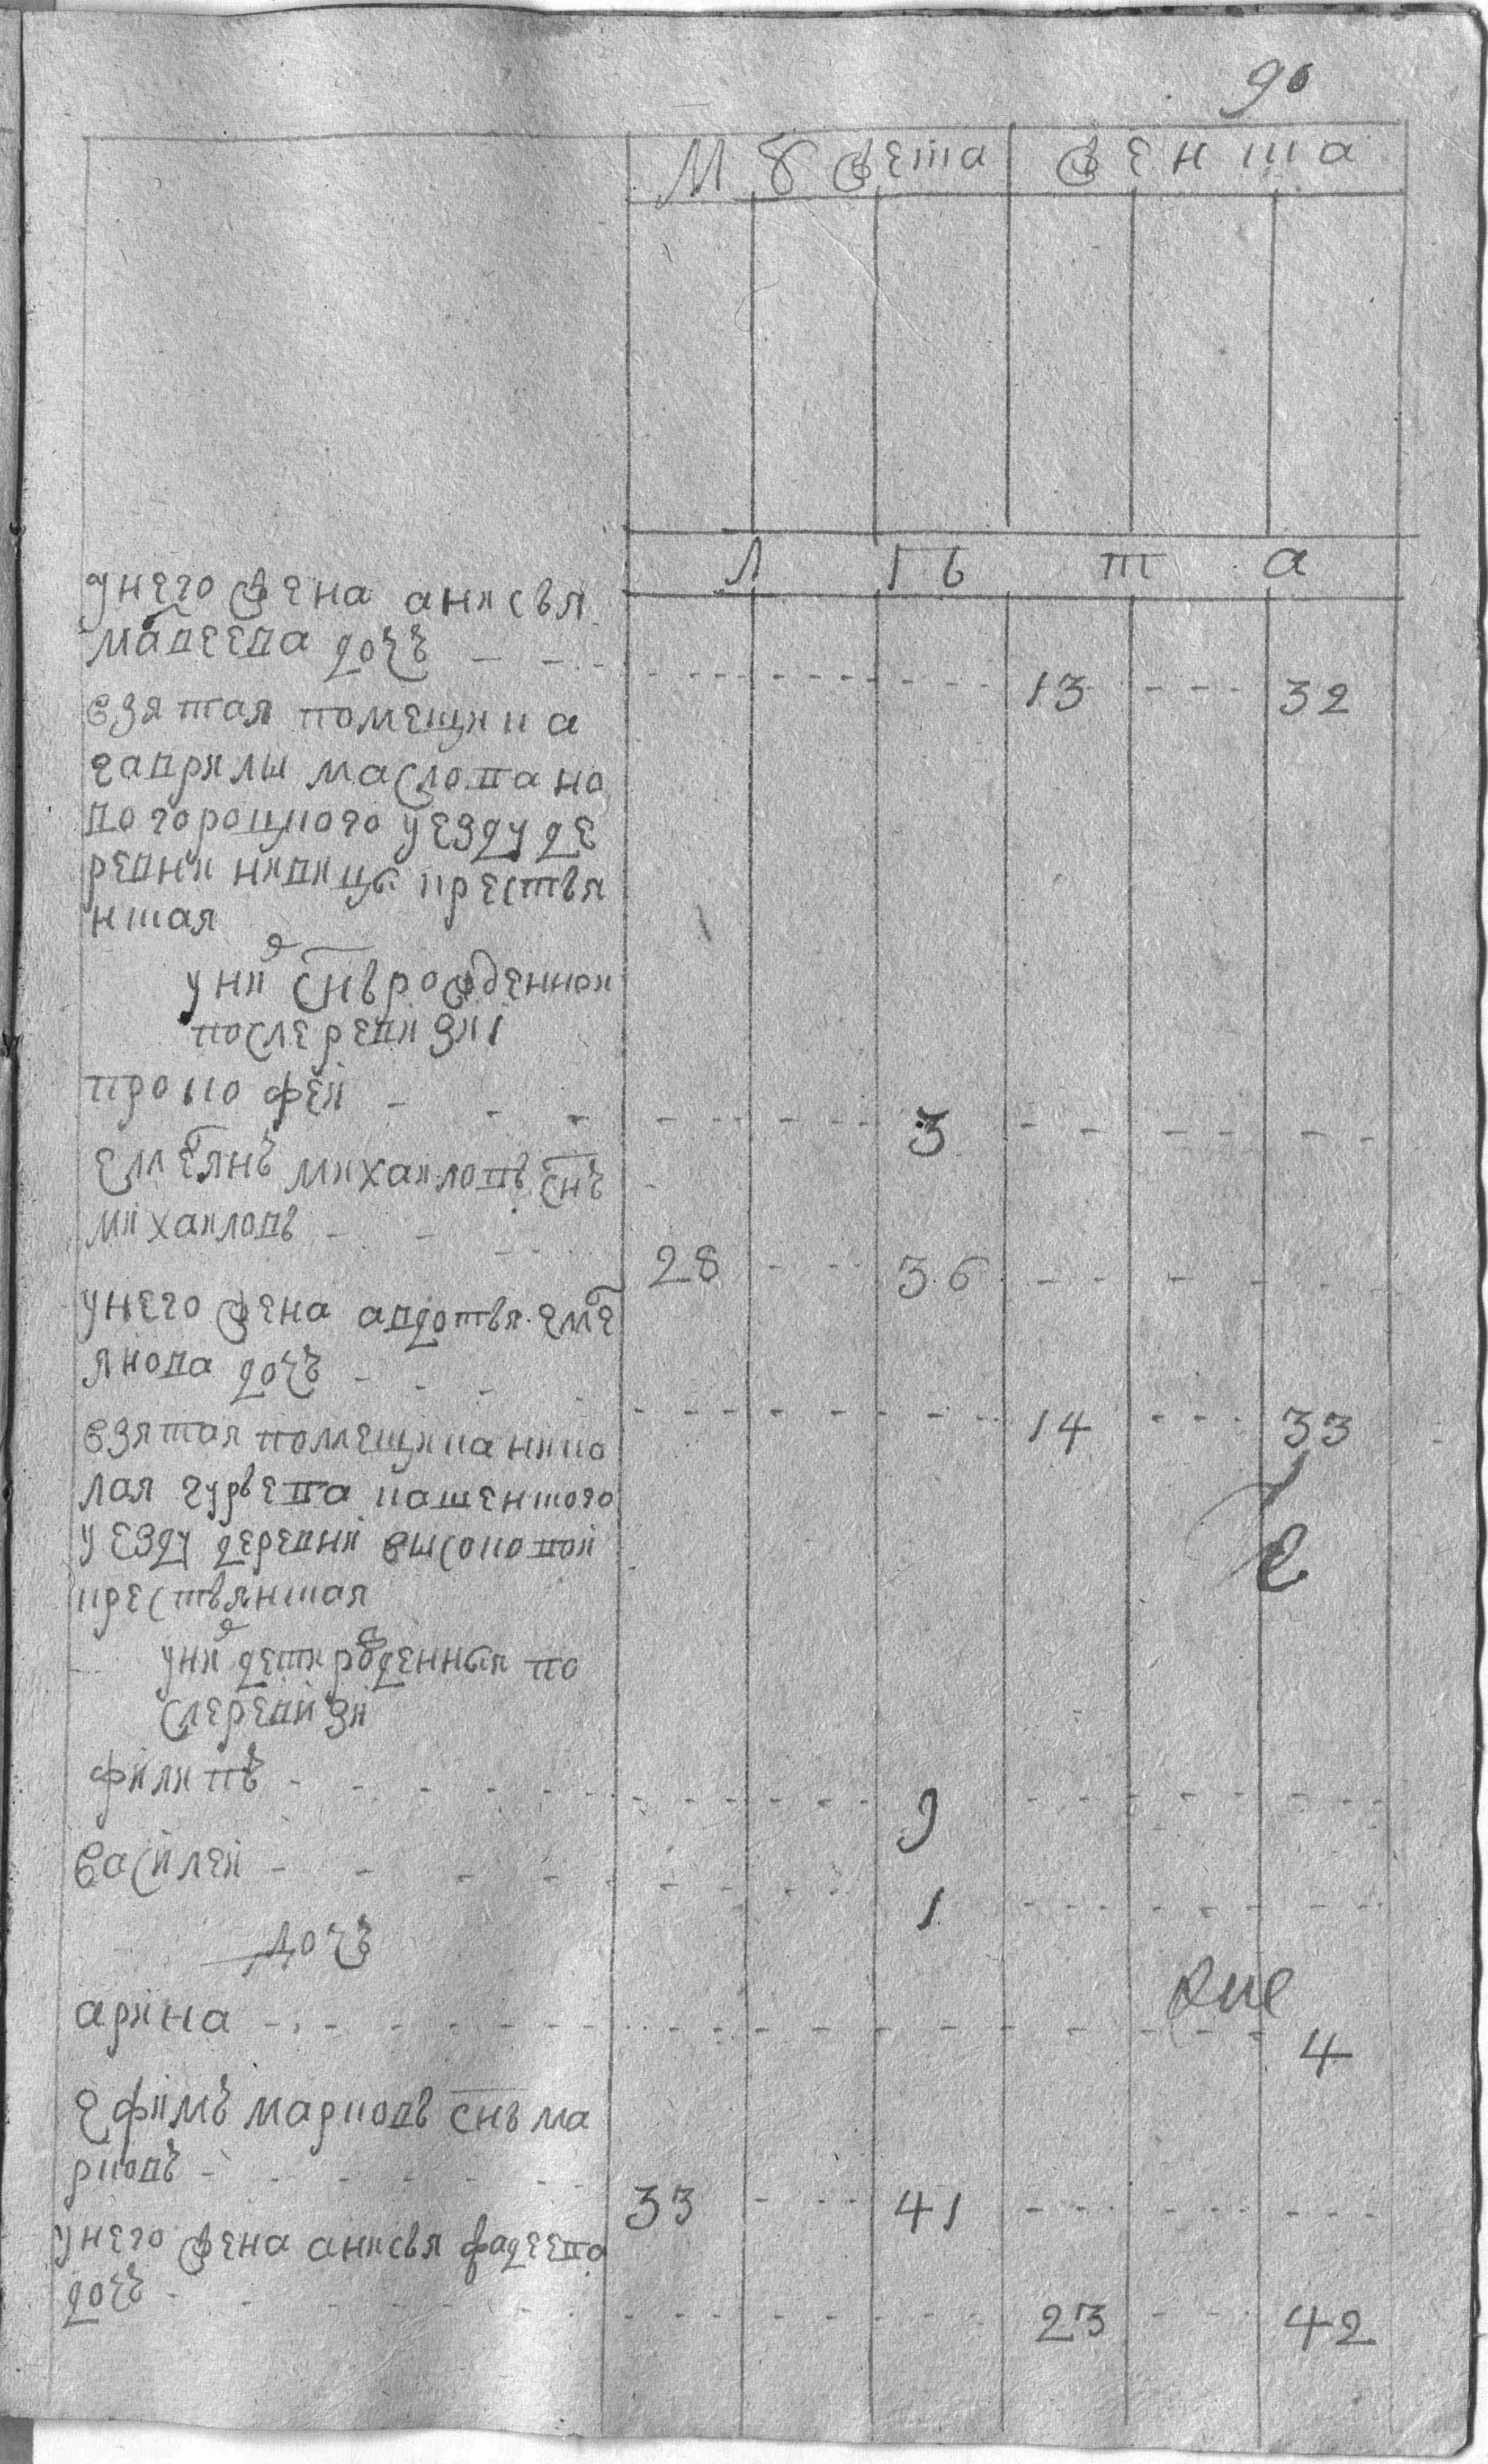 90
Мужеска Женска
Лѣта
у него жена анисья
матвеева дочь
13 32
взятая помещика
гаврилы маслова но
вогороцкого уезду де
ревни крестья
нская
у них снъ рожденнои
после ревизиі
прокофеи
3
емелянъ михаиловъ снъ
михаиловъ
28 36
у него жена авдотья емѣ
лянова дочь
14 33
взятая помещика нико
лая гурьева кашенского
уезду деревни высоковои
крестьянская
у них дети рожденныя по
сле ревизи
филипъ
9
василеи
1
дочь
арина
4
ефимъ марковъ снъ ма
рковъ
33 41
у него жена анисья фадеева
дочь
23 42